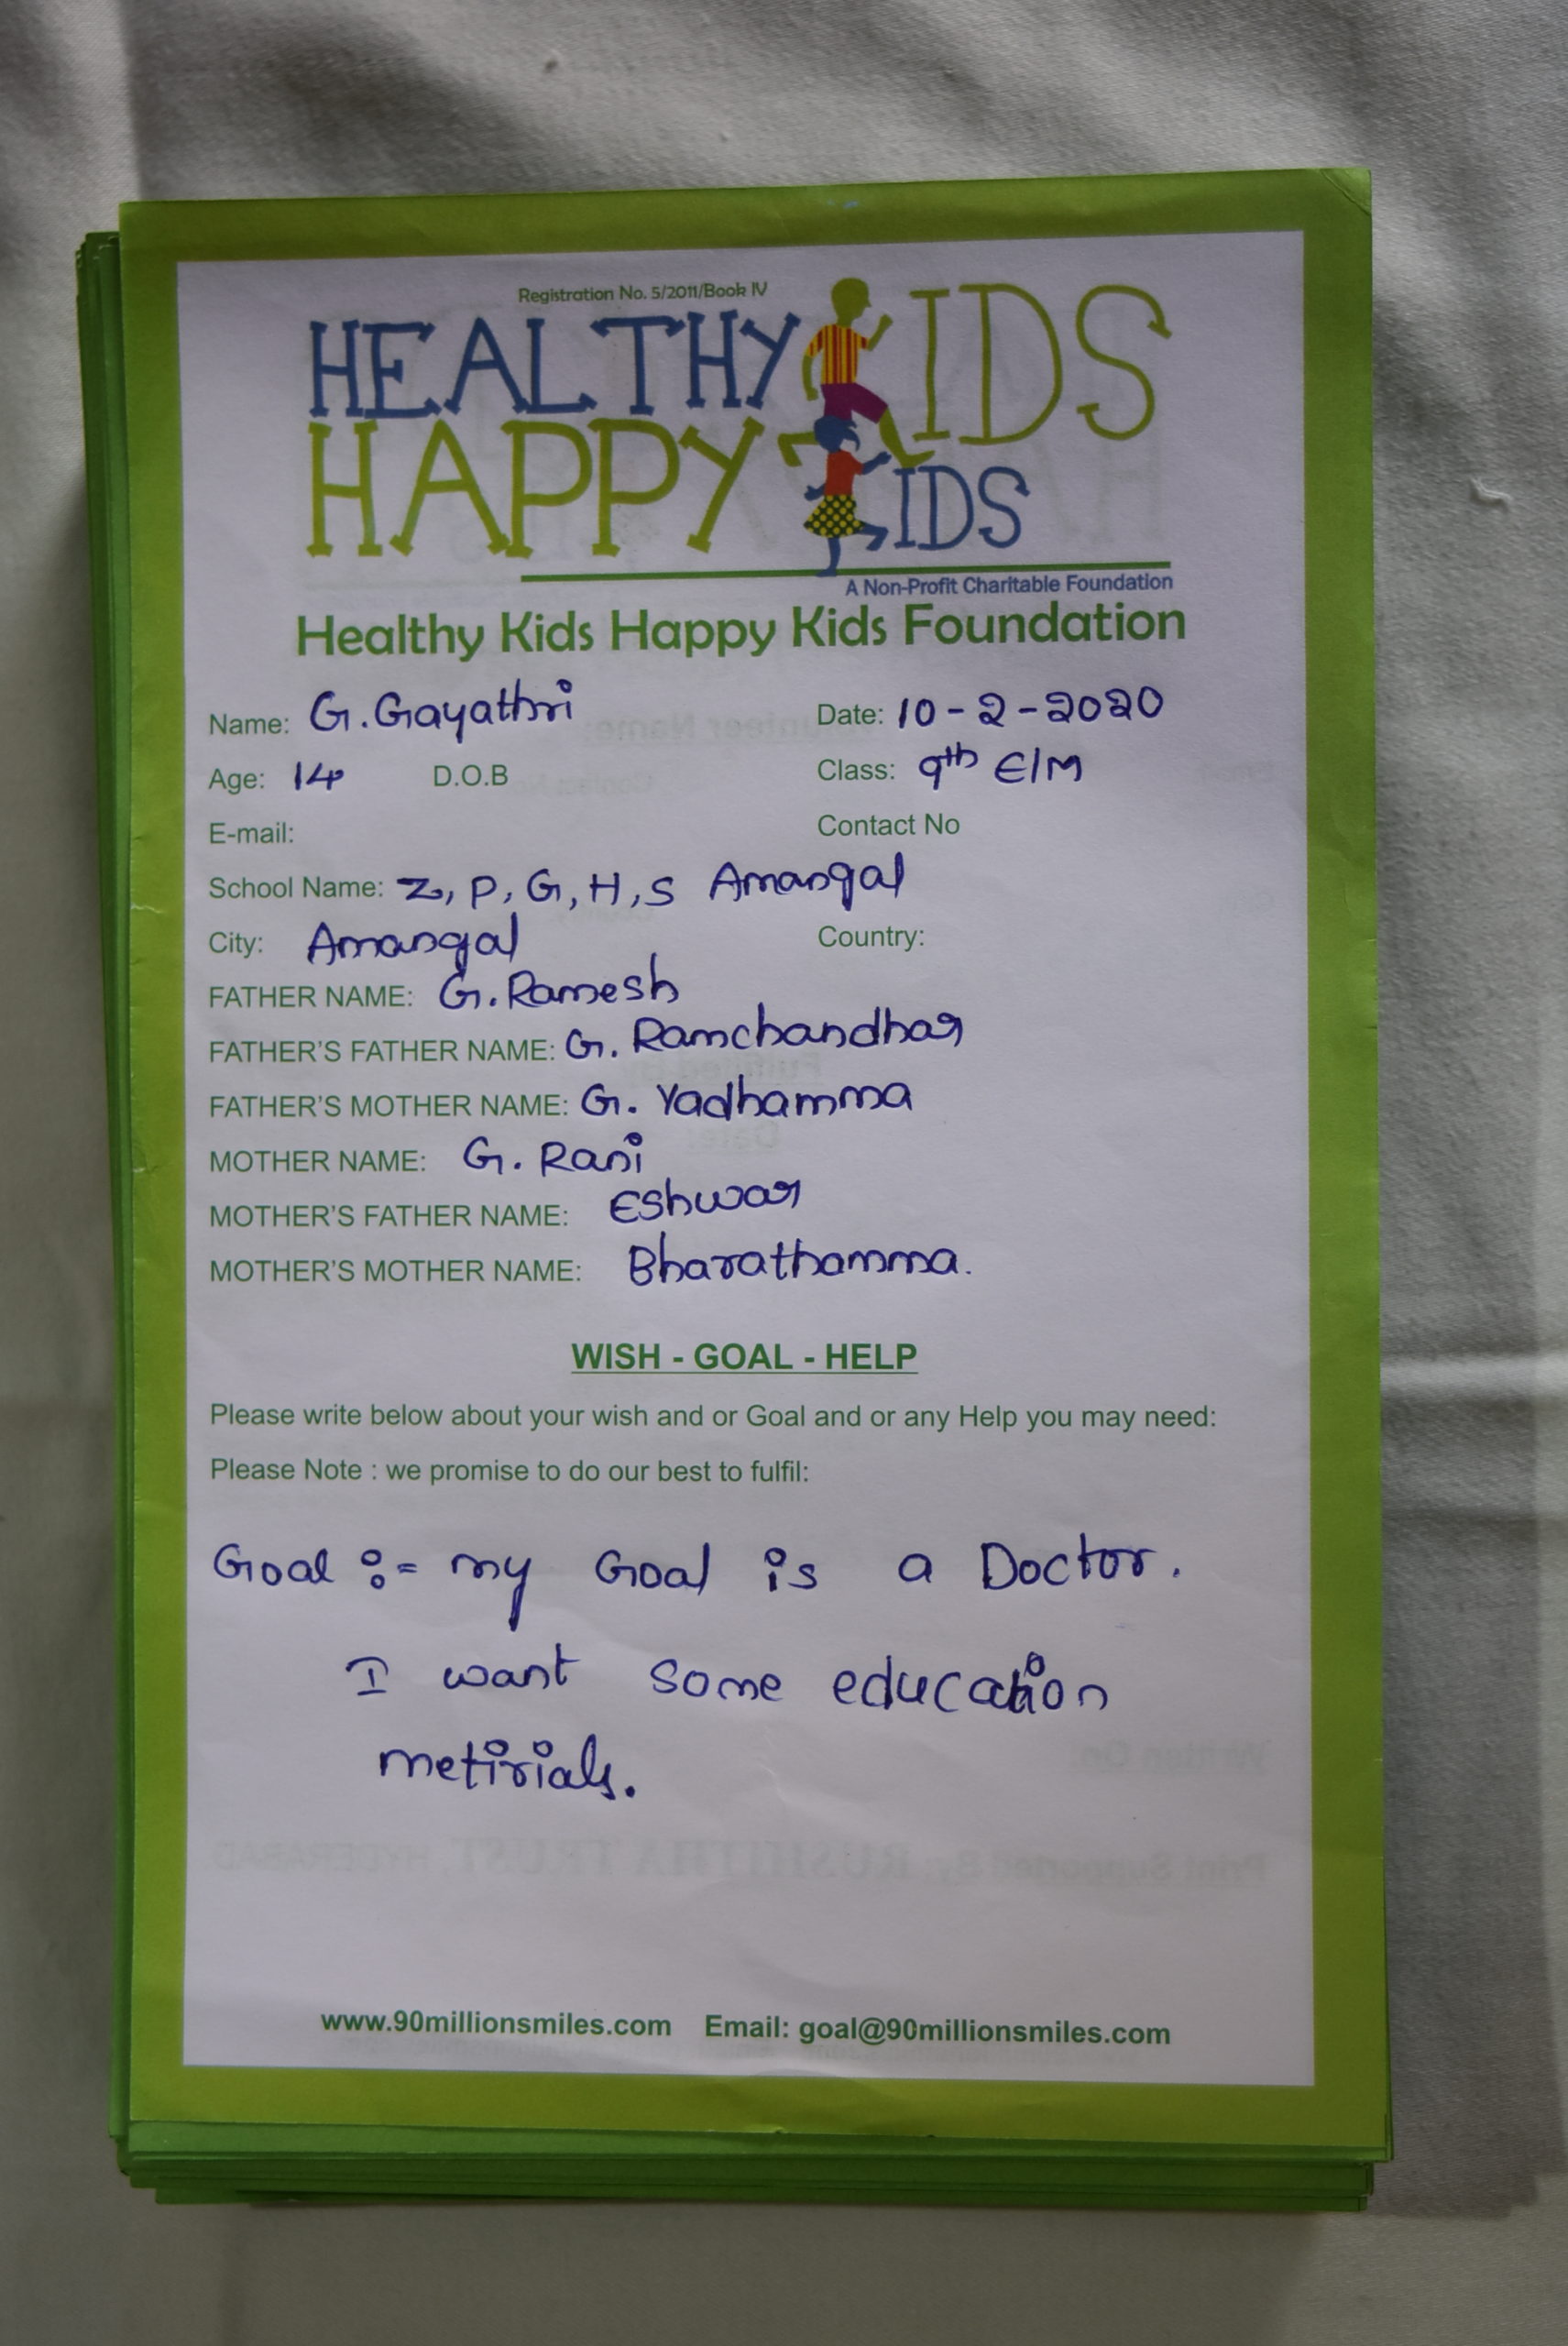 Registration No. 5/2011/Book IV
HEALTHY KIDS
HAPPY KIDS
A Non-Profit Charitable Foundation
Healthy Kids Happy Kids Foundation
Name: G. Gayathri Date: 10-2-2020
Age: 14 D.O.B Class: 9th E/M
E-mail: Contact No
School Name: Z, P, G, H, S Amangal
City: Amangal Country:
FATHER NAME: G. Ramesh
FATHER'S FATHER NAME: G. Ramchandhar
FATHER'S MOTHER NAME: G. Yadhamma
MOTHER NAME: G. Rani
MOTHER'S FATHER NAME: Eshwar
MOTHER'S MOTHER NAME: Bharathamma.
WISH - GOAL - HELP
Please write below about your wish and or Goal and or any Help you may need:
Please Note : we promise to do our best to fulfil:
Goal := my Goal is a Doctor.
I want some education
metirials.
www.90millionsmiles.com Email: goal@90millionsmiles.com